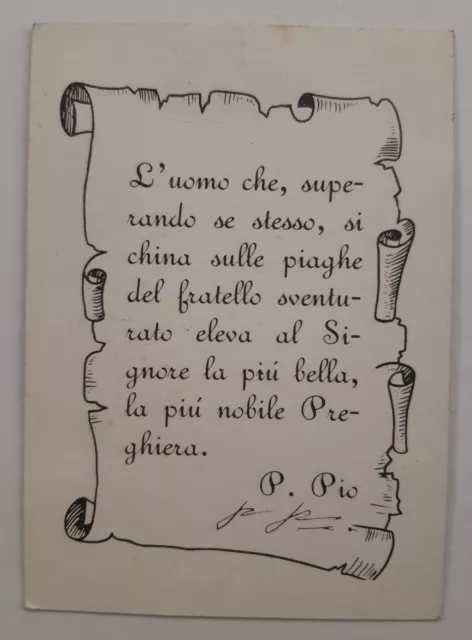 L'uomo che, supe-
rando se stesso, si
china sulle piaghe
del fratello sventu-
rato eleva al Si-
gnore la piú bella,
la piú nobile Pre-
ghiera.
P. Pio